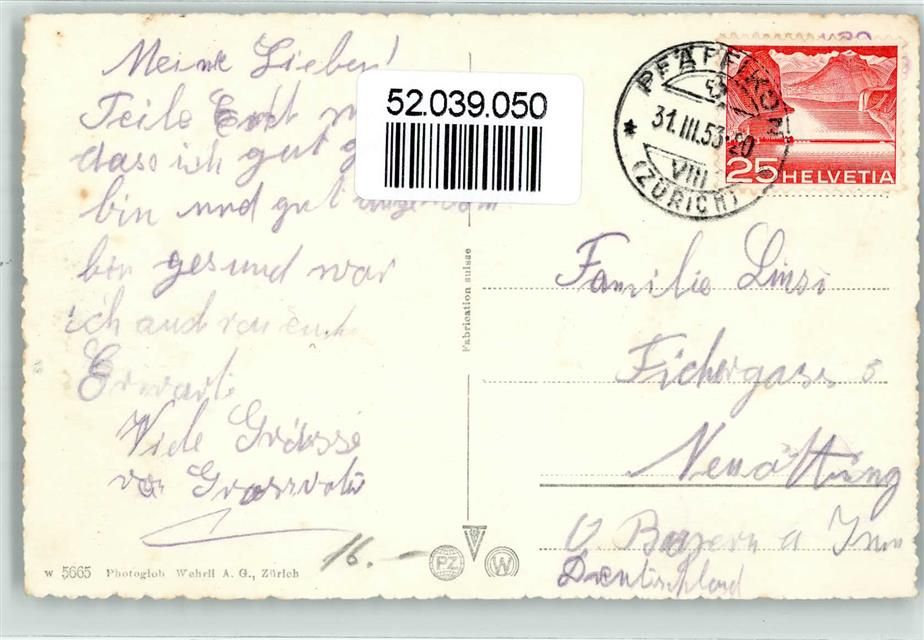 Meine Lieben!
Teile Euch
dass ich gut
bin und gut
bin gesund war
ich auch von euch
Erwarte
Viele Grüsse
von Grossvater
16.-
52.039.050
PFÄFFIKON
31.III.53-20
VIII
(ZÜRICH)
25 HELVETIA
Fabrication suisse
Familie Linsi
Fichergasse 5
Neuötting
O. Bayern a Inn
Deutschland
PZ
W
w 5665 Photoglob Wehrli A. G., Zürich